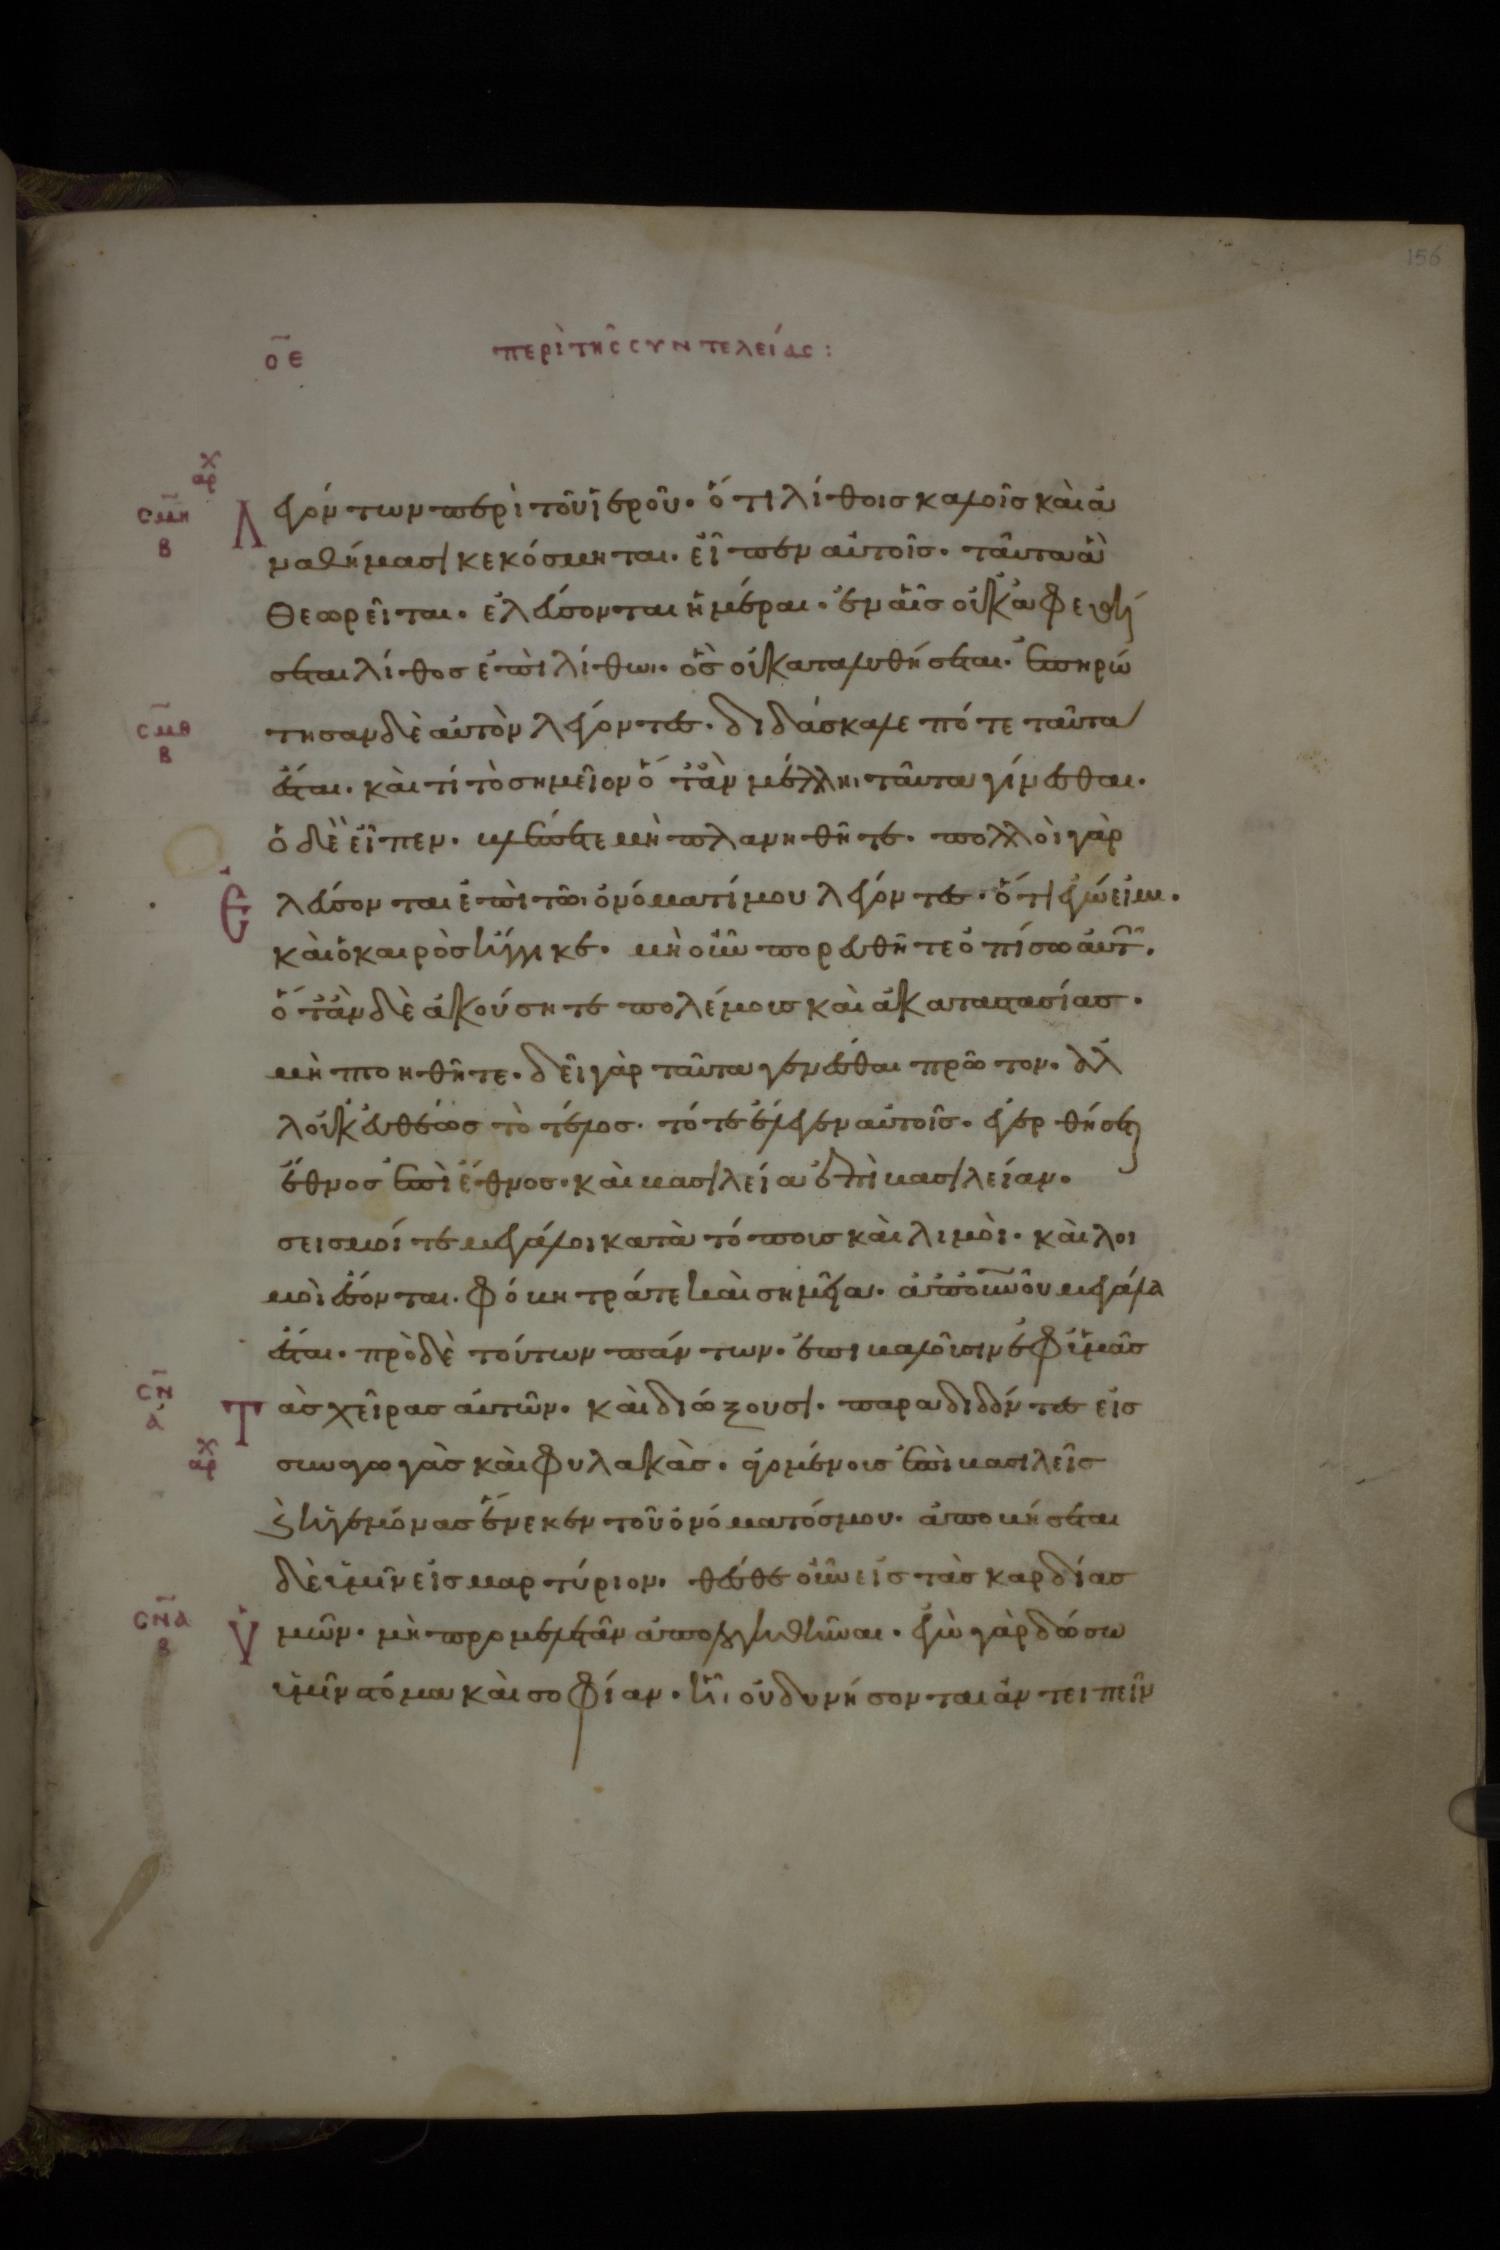 156
ο̅ε̅ περὶ τῆς συντελείας:
χ
αρ
σμη
β
Λεγόντων περὶ τοῦ ἱεροῦ. ὅτι λίθοις καλοῖς καὶ ἀ
ναθήμασι κεκόσμηται. εἶπεν αὐτοῖς. ταῦτα ἃ
θεωρεῖται. ἐλεύσονται ἡμέραι. ἐν αἷς οὐκ ἀφεθή
σεται λίθος ἐπὶ λίθωι. ὃς οὐ καταλυθήσεται. ἐπηρώ
σμθ
β
τησαν δὲ αὐτὸν λέγοντες. διδάσκαλε πότε ταῦτα
ἔσται. καὶ τί τὸ σημεῖον ὅταν μέλληι ταῦτα γίνεσθαι.
ὁ δὲ εἶπεν. βλέπετε μὴ πλανηθῆτε. πολλοὶ γὰρ
Ἐλεύσονται ἐπὶ τῶι ὀνόματί μου λέγοντες. ὅτι ἐγώ εἰμι.
καὶ ὁ καιρὸς ἤγγικε. μὴ οὖν πορευθῆτε ὀπίσω αὐτῶ̅.
ὅταν δὲ ἀκούσητε πολέμους καὶ ἀκαταστασίας.
μὴ πτοηθῆτε. δεῖ γὰρ ταῦτα γενέσθαι πρῶτον. ἀλ
λ οὐκ εὐθέως τὸ τέλος. τότε ἔλεγεν αὐτοῖς. ἐγερθήσεται
ἔθνος ἐπὶ ἔθνος. καὶ βασιλεία ἐπὶ βασιλείαν.
σεισμοί τε μεγάλοι κατὰ τόπους καὶ λιμοὶ. καὶ λοι
μοὶ ἔσονται. φόβητρά τε καὶ σημεῖα. ἀπὸ οὐνοῦ μεγάλα
ἔσται. πρὸ δὲ τούτων πάντων. ἐπιβαλοῦσιν ἐφ ὑμᾶς
σν
α
Τὰς χεῖρας αὐτῶν. καὶ διώξουσι. παραδιδόντες εἰς
χ
αρ
συναγωγὰς καὶ φυλακὰς. ἀγομένους ἐπὶ βασιλεῖς
ϗ ἡγεμόνας ἕνεκεν τοῦ ὀνόματός μου. ἀποβήσεται
δὲ ὑμῖν εἰς μαρτύριον. θέσθε οὖν εἰς τὰς καρδίας
σνα
β
Ὑμῶν. μὴ προμελετᾶν ἀπολογηθῆναι. ἐγὼ γὰρ δώσω
ὑμῖν στόμα καὶ σοφίαν. ἧι οὐ δυνήσονται ἀντειπεῖν